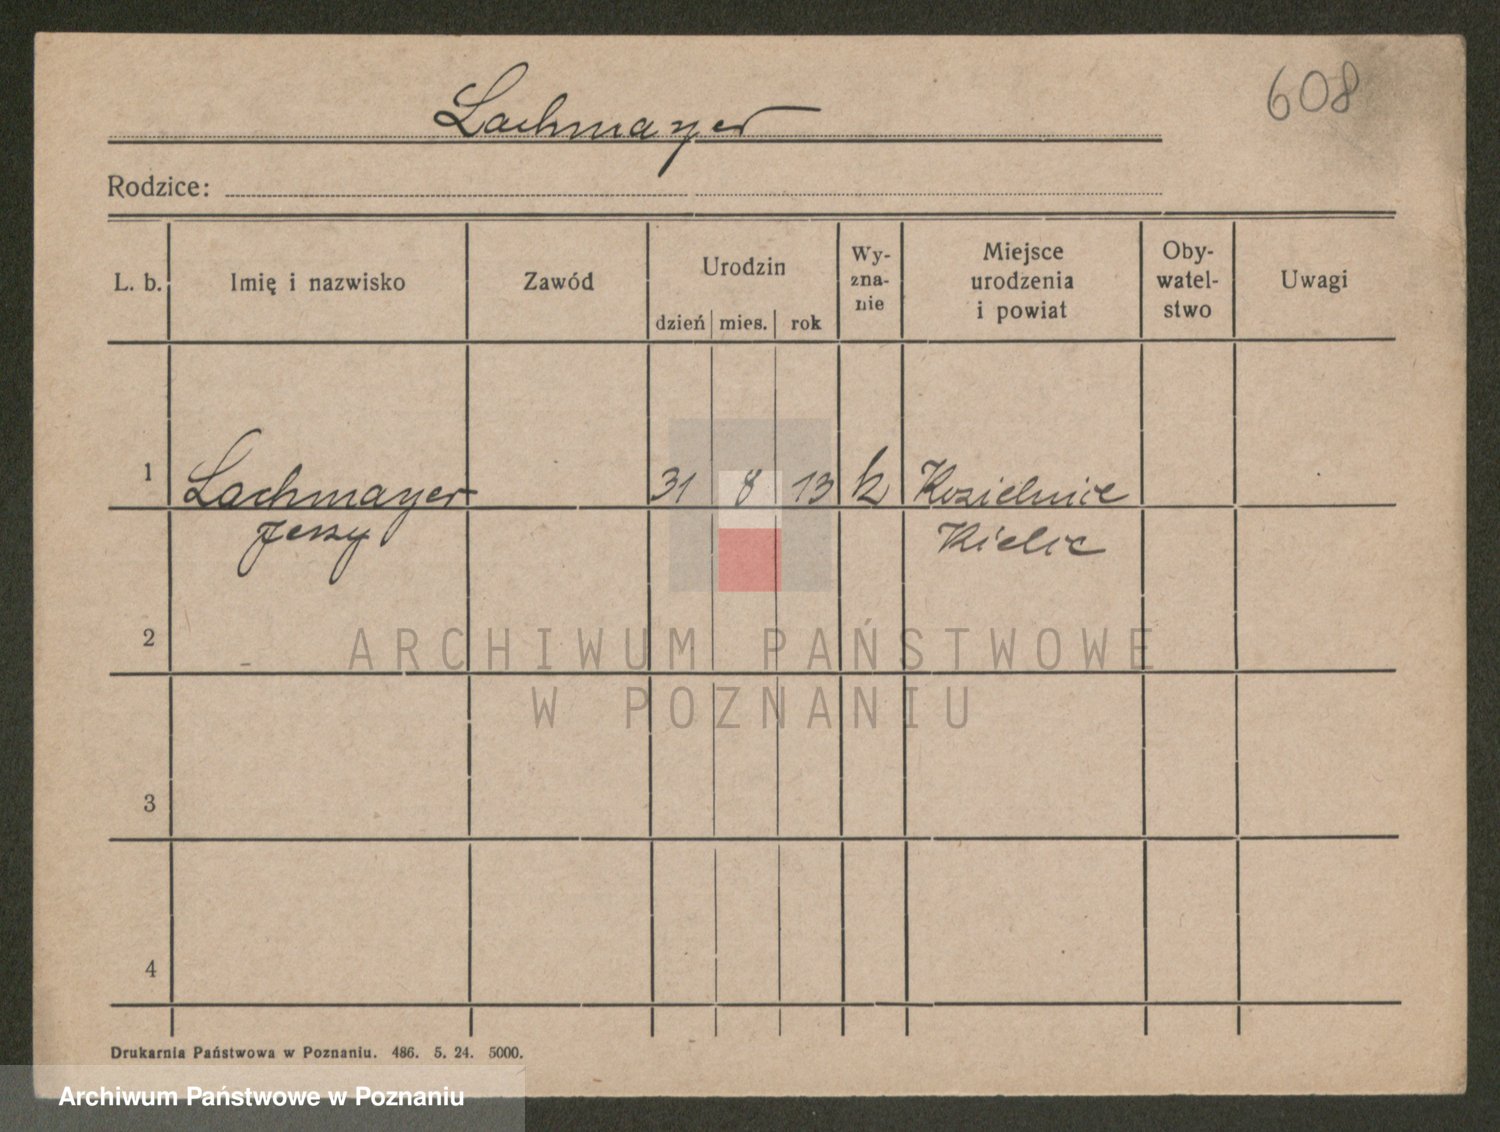 608
Lachmayer
Rodzice:
L. b.
Imię i nazwisko
Zawód
Urodzin
dzień
mies.
rok
Wy-
zna-
nie
Miejsce
urodzenia
i powiat
Oby-
watel-
stwo
Uwagi
1
Lachmayer
Jerzy
31
8
13
k
Kozielnice
Kielce
2
3
4
ARCHIWUM PAŃSTWOWE
W POZNANIU
Drukarnia Państwowa w Poznaniu. 486. 5. 24. 5000.
Archiwum Państwowe w Poznaniu